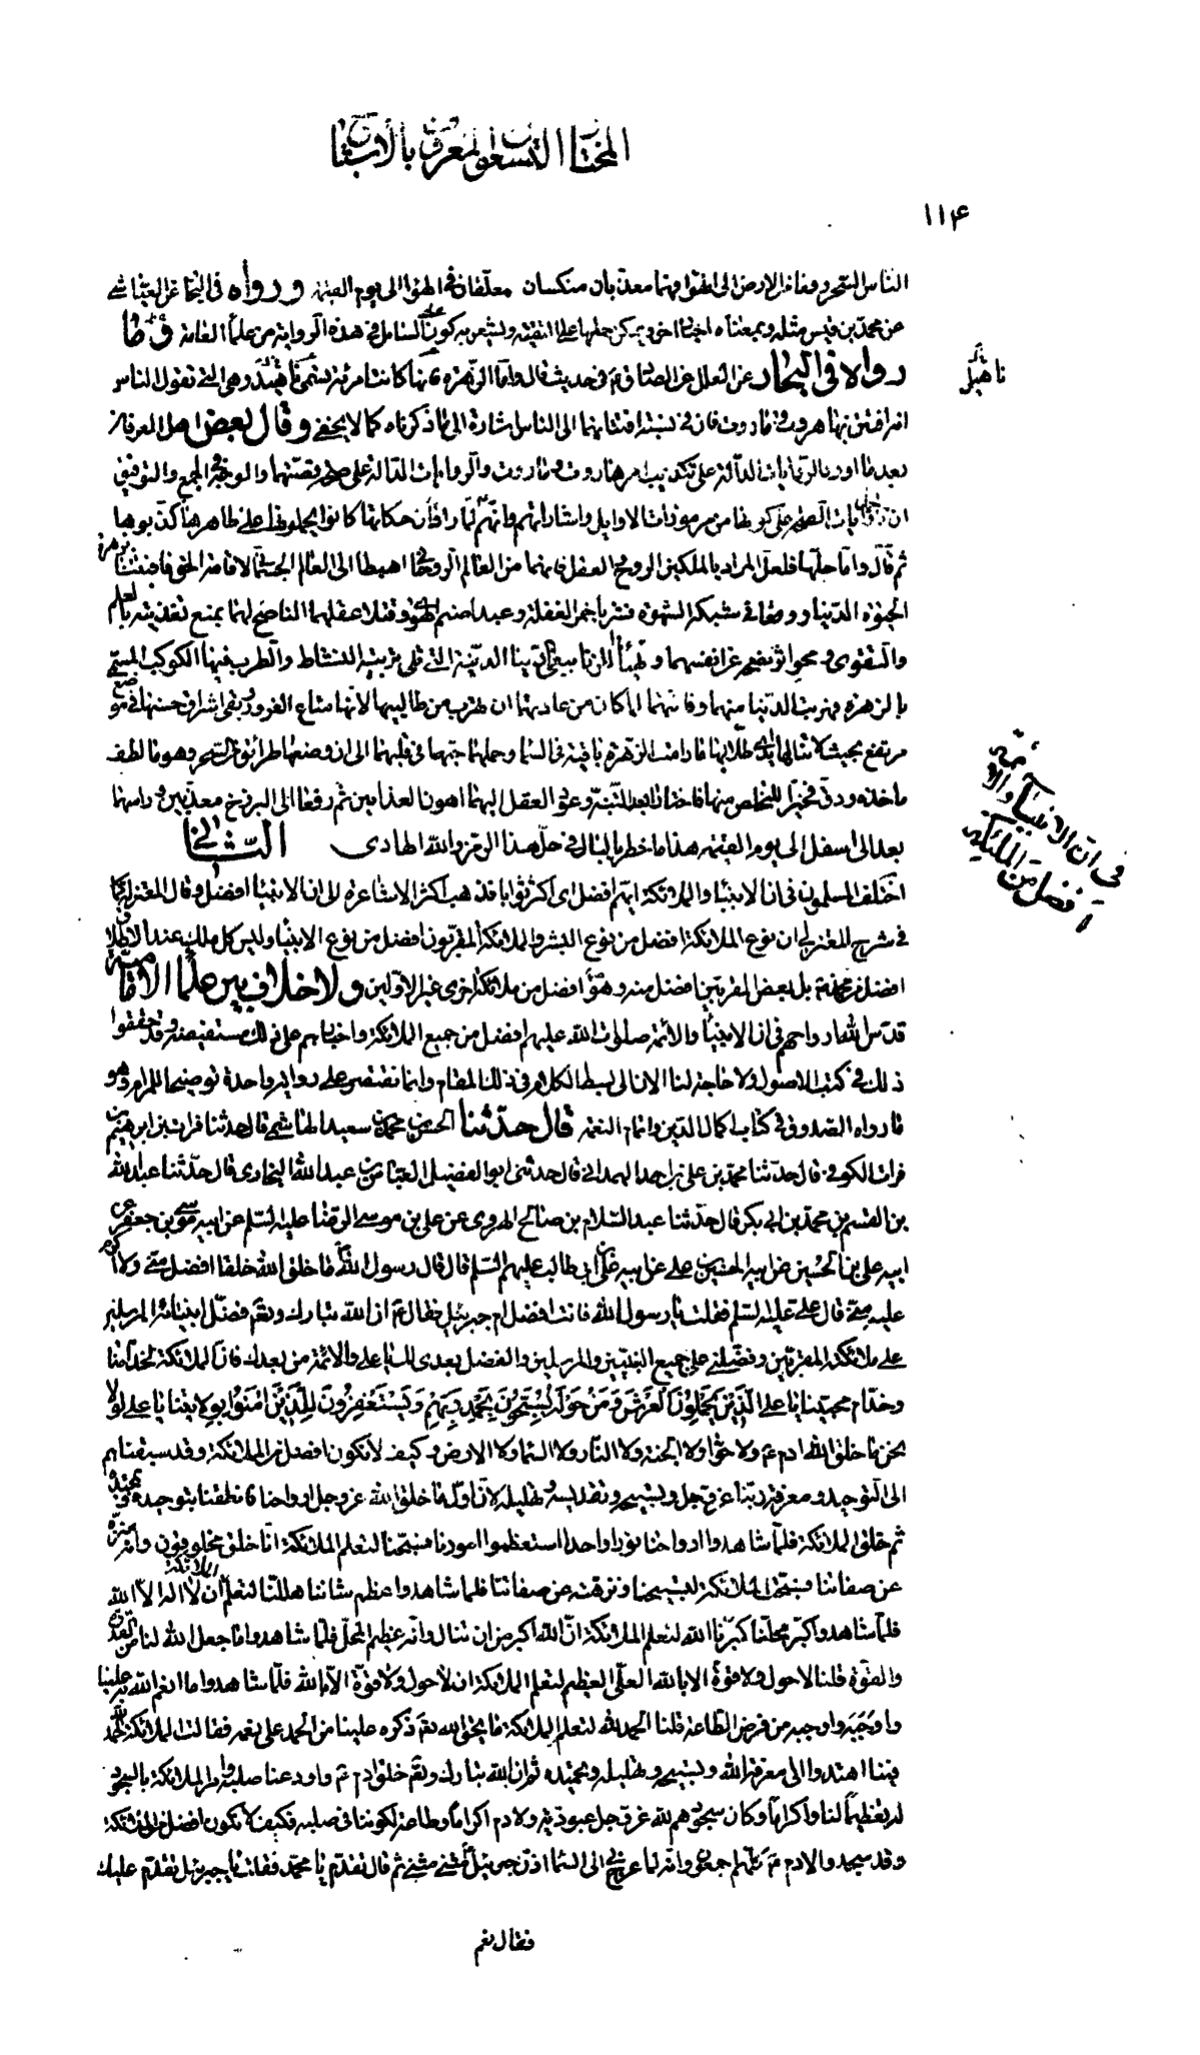 المختار التسعون المعروف بالأشباح
۱۱۴
الناس السحر ومفاخر الارض الى الهوا فهما معذبان منكسان معلقان فى الهوا الى يوم القيمة ورواه فى البحار عن العياشى
عن محمد بن قيس مثله وبمعناه اخبار اخر ويمكن حملها على التقية ويشعر به كون السائل فى هذه الرواية من علماء العامة
رواه فى البحار عن العلل عن الصادق ع فى حديث قال واما الزهرة فانها كانت امرئة تسمى ناهيد وهى التى تقول الناس
ناهيل
انه افتتن بها هروت وماروت فان فى نسبة افتتانهما الى الناس اشارة الى ما ذكرناه كما لا يخفى وقال بعض اهل المعرفة
بعد ما اورد الروايات الدالة على تكذيب امر هاروت وماروت والروايات الدالة على صحة قصتهما والوجه فى الجمع والتوفيق
ان روايات الصحة على كونها من مرموزات الاوايل واشاراتهم وانهم لما راوا ان حكاتها كانوا يحملونها على ظاهرها كذبوها
ثم قال واما حلها فلعل المراد بالملكين الروح والعقل فانهما من العالم الروحانى اهبطا الى العالم الجسمانى لاقامة الحق فافتتنا بزهرة
الحيوة الدنيا ووقعا فى شبكة الشهوة فشربا خمر الغفلة وعبدا صنم الهوى وقتلا عقلهما الناصح لهما بمنع تغذيته بالعلم
والتقوى ومحو اثر نصحه عن انفسهما وتهيأ للزنا ببغى الدنيا الدنية التى تلى تربية النشاط والطرب فيها الكوكب المسمى
بالزهرة فهربت الدنيا منهما وفاتتهما لما كان من عادتها ان تهرب من طالبيها لانها متاع الغرور وبقى اشراق حسنها فى موضع
مرتفع بحيث لا تنالها ايدى طلابها ما دامت الزهرة باقية فى السماء وحملهما حبها فى قلبهما الى ان وضعا طرائق من السحر وهو ما لطف
ماخذه ودق فخيرا للتخلص منها فاختارا بعد التنبه وعود العقل اليهما اهون العذابين ثم رفعا الى البرزخ معذبين وراسهما
بعد الى اسفل الى يوم القيمة هذا ما خطر بالبال فى حل هذا الرمز والله الهادى الثانى
فى ان الانبياء والائمة
افضل من الملئكة
اختلف المسلمون فى ان الانبياء والملائكة ايهم افضل اى اكثر ثوابا فذهب اكثر الاشاعرة الى ان الانبياء افضل وقال المعتزلة كما
فى شرح المعتزلى ان نوع الملائكة افضل من نوع البشر والملائكة المقربون افضل من نوع الانبياء وليس كل ملك عند الاطلاق
افضل من محمد ص بل بعض المقربين افضل منه وهو افضل من ملائكة اخرى غير الاولين ولا خلاف بين علماء الامامية
قدس الله ارواحهم فى ان الانبياء والائمة صلوات الله عليهم افضل من جميع الملائكة واخبارهم على ذلك مستفيضة وقد حققوا
ذلك فى كتب الاصول ولا حاجة لنا الان الى بسط الكلام فى ذلك المقام وانما نقتصر على رواية واحدة توضيحا للمرام وهو
ما رواه الصدوق فى كتاب اكمال الدين واتمام النعمة قال حدثنا الحسن بن محمد بن سعيد الهاشمى قال حدثنا فرات بن ابرهيم بن
فرات الكوفى قال حدثنا محمد بن على بن احمد الهمدانى قال حدثنى ابو الفضل العباس بن عبد الله البخارى قال حدثنا عبد الله
بن القسم بن محمد بن ابى بكر قال حدثنا عبد السلام بن صالح الهروى عن على بن موسى الرضا عليه السلم عن ابيه موسى بن جعفر عن
ابيه على بن الحسين عن ابيه الحسين بن على عن ابيه على بن ابى طالب عليهم السلم قال قال رسول الله ما خلق الله خلقا افضل منى ولا اكرم
عليه منى قال على عليه السلم فقلت يا رسول الله فانت افضل ام جبرئيل فقال ع ان الله تبارك وتعم فضل انبيائه المرسلين
على ملائكته المقربين وفضلنى على جميع النبيين والمرسلين والفضل بعدى لك يا على والائمة من بعدك فان الملائكة لخدامنا
وخدام محبينا يا على الَّذِينَ يَحْمِلُونَ الْعَرْشَ وَمَنْ حَوْلَهُ يُسَبِّحُونَ بِحَمْدِ رَبِّهِمْ وَيَسْتَغْفِرُونَ لِلَّذِينَ امَنُوا بولايتنا يا على لولا
نحن ما خلق الله ادم ع ولا حوا ولا الجنة ولا النار ولا السماء ولا الارض وكيف لا نكون افضل من الملائكة وقد سبقناهم
الى التوحيد ومعرفة ربنا عز وجل وتسبيحه وتقديسه وتهليله لان اول ما خلق الله عز وجل ارواحنا فانطقنا بتوحيده وتمجيده
ثم خلق الملائكة فلما شاهدوا ارواحنا نورا واحدا استعظموا امورنا فسبحنا لتعلم الملائكة انا خلق مخلوقون وانه منزه
عن صفاتنا فسبحت الملائكة لتسبيحنا ونزهته عن صفاتنا فلما شاهدوا عظم شاننا هللنا لتعلم الملائكة ان لا اله الا الله
فلما شاهدوا كبر محلنا كبرنا الله لتعلم الملائكة ان الله اكبر من ان تنال وانه عظيم المحل فلما شاهدوا ما جعل الله لنا من القدرة
والقوة قلنا لا حول ولا قوة الا بالله العلى العظيم لتعلم الملائكة ان لا حول ولا قوة الا بالله فلما شاهدوا ما انعم الله به علينا
واوجبه من فرض الطاعة قلنا الحمد لله لتعلم الملائكة ما يحق لله تعم ذكره علينا من الحمد على نعمه فقالت الملائكة الحمد لله
فبنا اهتدوا الى معرفة الله وتسبيحه وتهليله وتحميده ثم ان الله تبارك وتعم خلق ادم ع واودعنا صلبه وامر الملائكة بالسجود
له تعظيما لنا واكراما وكان سجودهم لله عز وجل عبودية ولادم اكراما وطاعة لكوننا فى صلبه فكيف لا نكون افضل من الملائكة
وقد سجدوا لادم ع كلهم اجمعون وانه لما عرج بى الى السماء اذن جبرئيل مثنى مثنى ثم قال تقدم يا محمد فقلت يا جبرئيل تقدم عليك
فقال نعم